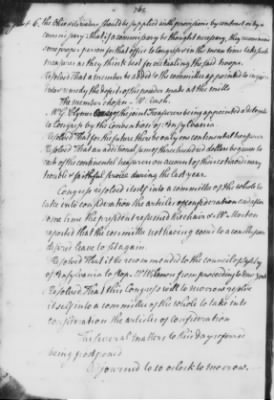 the Ohio & elsewhere should be supplied with provisions by contract or by a
commissary; that if a commissary be thought necessary, they recommend
some proper person for that office to Congress in the mean time take such
measures as they think best for victualling the said troops.
Resolved That a member be added to the committee appointed to inquire
into & remedy the defects of the powder made at the mills
The member chosen Mr
Mr one of the joint Treasurers being appointed a delegate
to Congress by the Convention of Pensylvania
Resolved That for the future there be only one continental treasurer
Resolved That an additional sum of three hundred dollars be given to
each of the continental treasurers on account of their extraordinary
trouble & faithful service during the last year.
Congress resolved itself into a committee of the whole to
take into consideration the articles of confederation and after
some time the president resumed the chair & Mr Morton
reported that the committee not having come to a conclusion
desired leave to sit again.
Resolved That it be recommended to the council of safety
of Pensylvania to stop from proceeding to New York
Resolved That this Congress will to morrow resolve
itself into a committee of the whole to take into
consideration the articles of confederation
The several matters to this day referred
being postponed
Adjourned to 10 oClock to morrow.